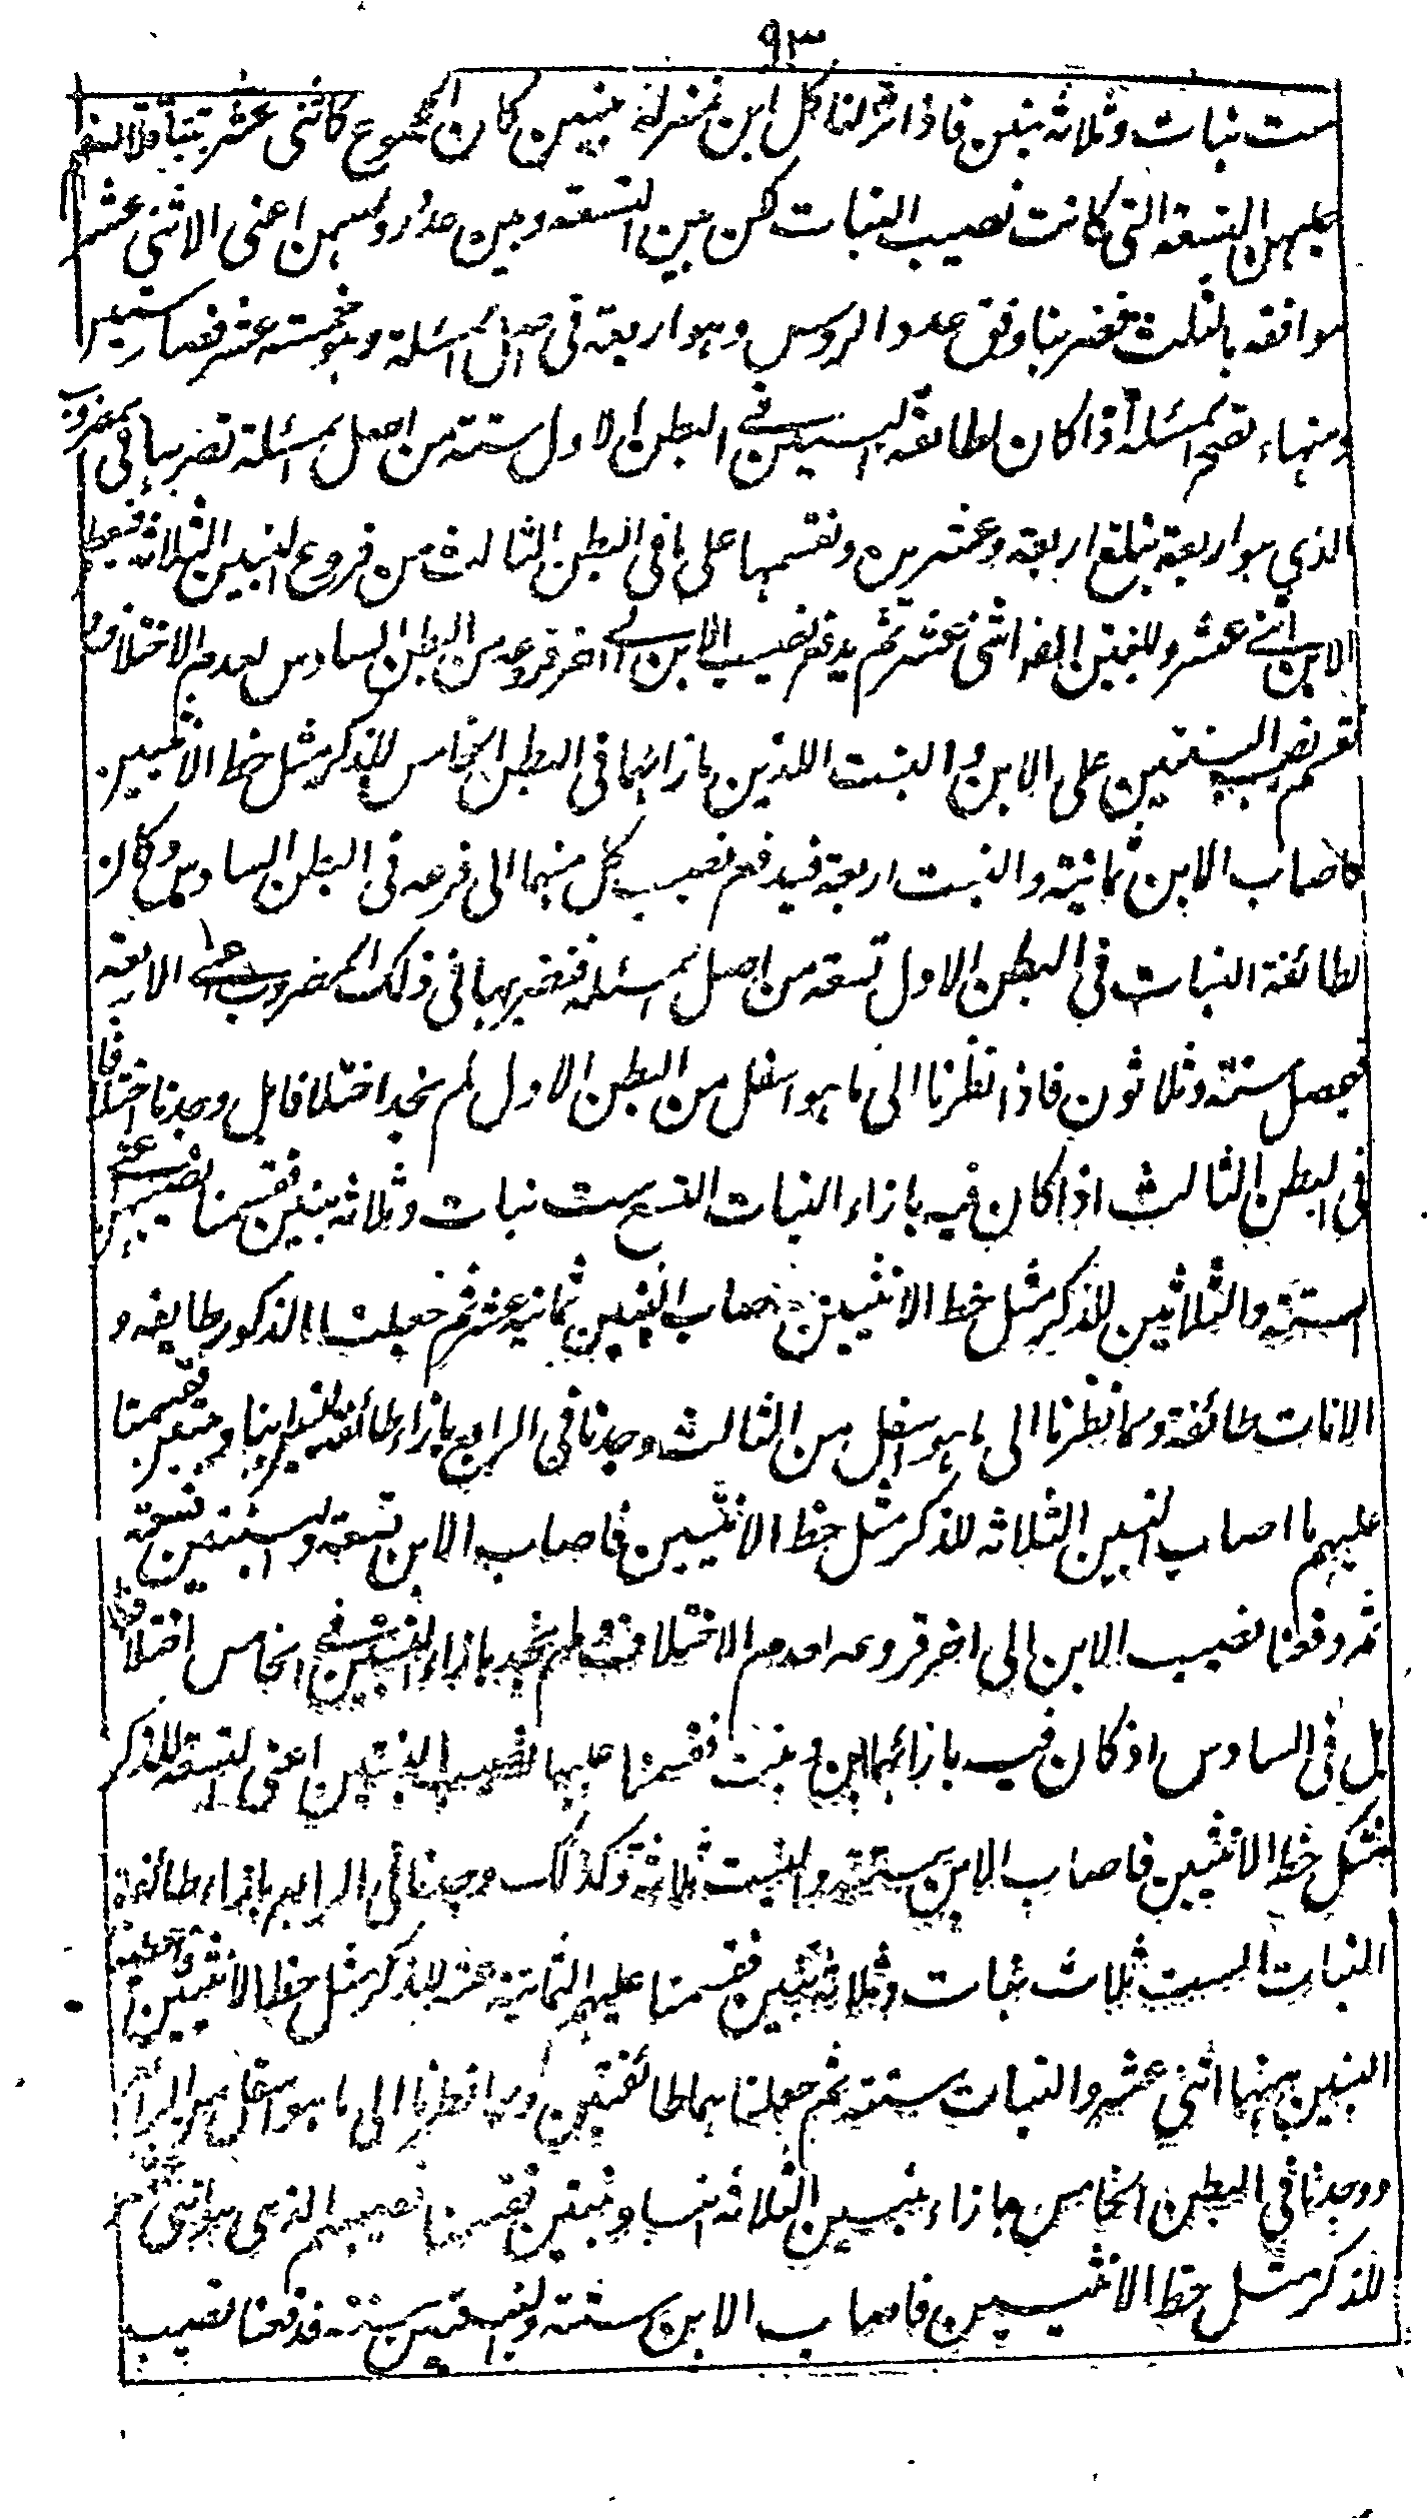 ٩٣
ست بنات وثلاثة بنين فاذا نزلنا كل ابن منزلة بنتين كان المجموع كاثنى عشر بنتا فلا تنقسم
عليهن التسعة التى كانت نصيب البنات لكن بين التسعة وبين عدد روسهن اعنى الاثنى عشر
موافقة بالثلث فضربنا وفق عدد الروس وهو اربعة فى اصل المسئلة وهو خمسة عشر فصار ستين
ومنها تصح المسئلة اذا كان لطائفة البنين فى البطن الاول ستة من اصل المسئلة نضربها فى المضروب
الذي هو اربعة يبلغ اربعة وعشرين ونقسمها على ما فى البطن الثالث من فروع البنين الثلاثة فنعطى
الابن اثنى عشر وللبنتين ايضا اثنى عشر ثم يدفع نصيب الابن الى اخر فروعه من البطن السادس لعدم الاختلاف
نقسم نصيب البنتين على الابن والبنت اللذين بازائهما فى البطن الخامس للذكر مثل حظ الانثيين
فاصاب الابن ثمانية والبنت اربعة فيدفع نصيب كل منهما الى فرعه فى البطن السادس وكان
لطائفة البنات فى البطن الاول تسعة من اصل المسئلة فنضربها فى ذلك المضروب اعنى الاربعة
فيحصل ستة وثلاثون فاذا نظرنا الى ما هو اسفل من البطن الاول لم نجد اختلافا بل وجدنا اختلافا
فى البطن الثالث اذا كان فيه بازاء البنات التسع ست بنات وثلاثة بنين فقسمنا نصيبهن اعنى
الستة والثلاثين للذكر مثل حظ الانثيين اصاب البنين ثمانية عشر ثم جعلنا الذكور طايفة و
الاناث طائفة ولما نظرنا الى ما هو اسفل من الثالث وجدنا فى الرابع بازاء طائفة البنين ابنا وبنتين فقسمنا
عليهم ما اصاب البنين الثلاثة للذكر مثل حظ الانثيين فاصاب الابن تسعة والبنتين تسعة
ثم دفعنا نصيب الابن الى اخر فروعه لعدم الاختلاف ولم نجد بازاء البنتين فى الخامس اختلافا
بل فى السادس اذ كان فيه بازائهما ابن وبنت فقسمنا عليهما نصيب البنتين اعنى التسعة للذكر
مثل حظ الانثيين فاصاب الابن ستة والبنت ثلاثة وكذلك وجدنا فى الرابع بازاء طائفة
البنات الست ثلاث بنات وثلاثة بنين فقسمنا عليهم الثمانية عشر للذكر مثل حظ الانثيين
البنين منها اثنى عشر والبنات ستة ثم جعلناهما طائفتين ولما نظرنا الى ما هو اسفل من الرابع
ووجدنا فى البطن الخامس بازاء بنين الثلاثة ابنا وبنتين فقسمنا نصيبهم الذى هو اثنى عشر
للذكر مثل حظ الانثيين فاصاب الابن ستة والبنتين ستة فدفعنا نصيب